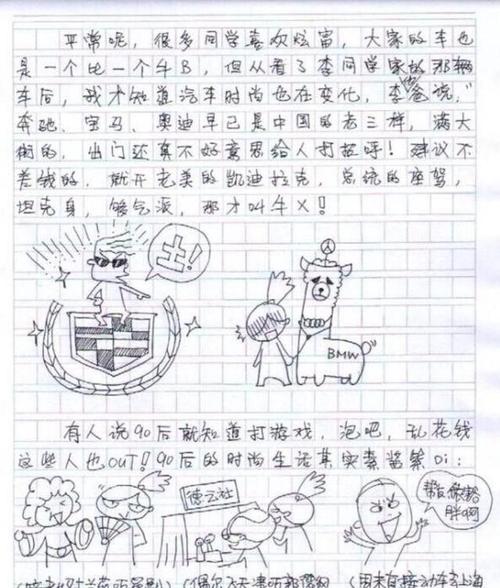 平常呢，很多同学喜欢炫富，大家的车也
是一个比一个牛B，但从看了李同学家的那辆
车后，我才知道汽车时尚也在变化，李爸说，"
奔驰、宝马、奥迪早已是中国的老三样，满大
街的，出门还真不好意思给人打招呼！建议不
差钱的，就开老美的凯迪拉克，总统的座驾，
坦克身，够气派，那才叫牛X！
土！
BMW
有人说90后就知道打游戏，泡吧，乱花钱
这些人也OUT！90后的时尚生活其实素酱紫Di：
德云社
胖啊